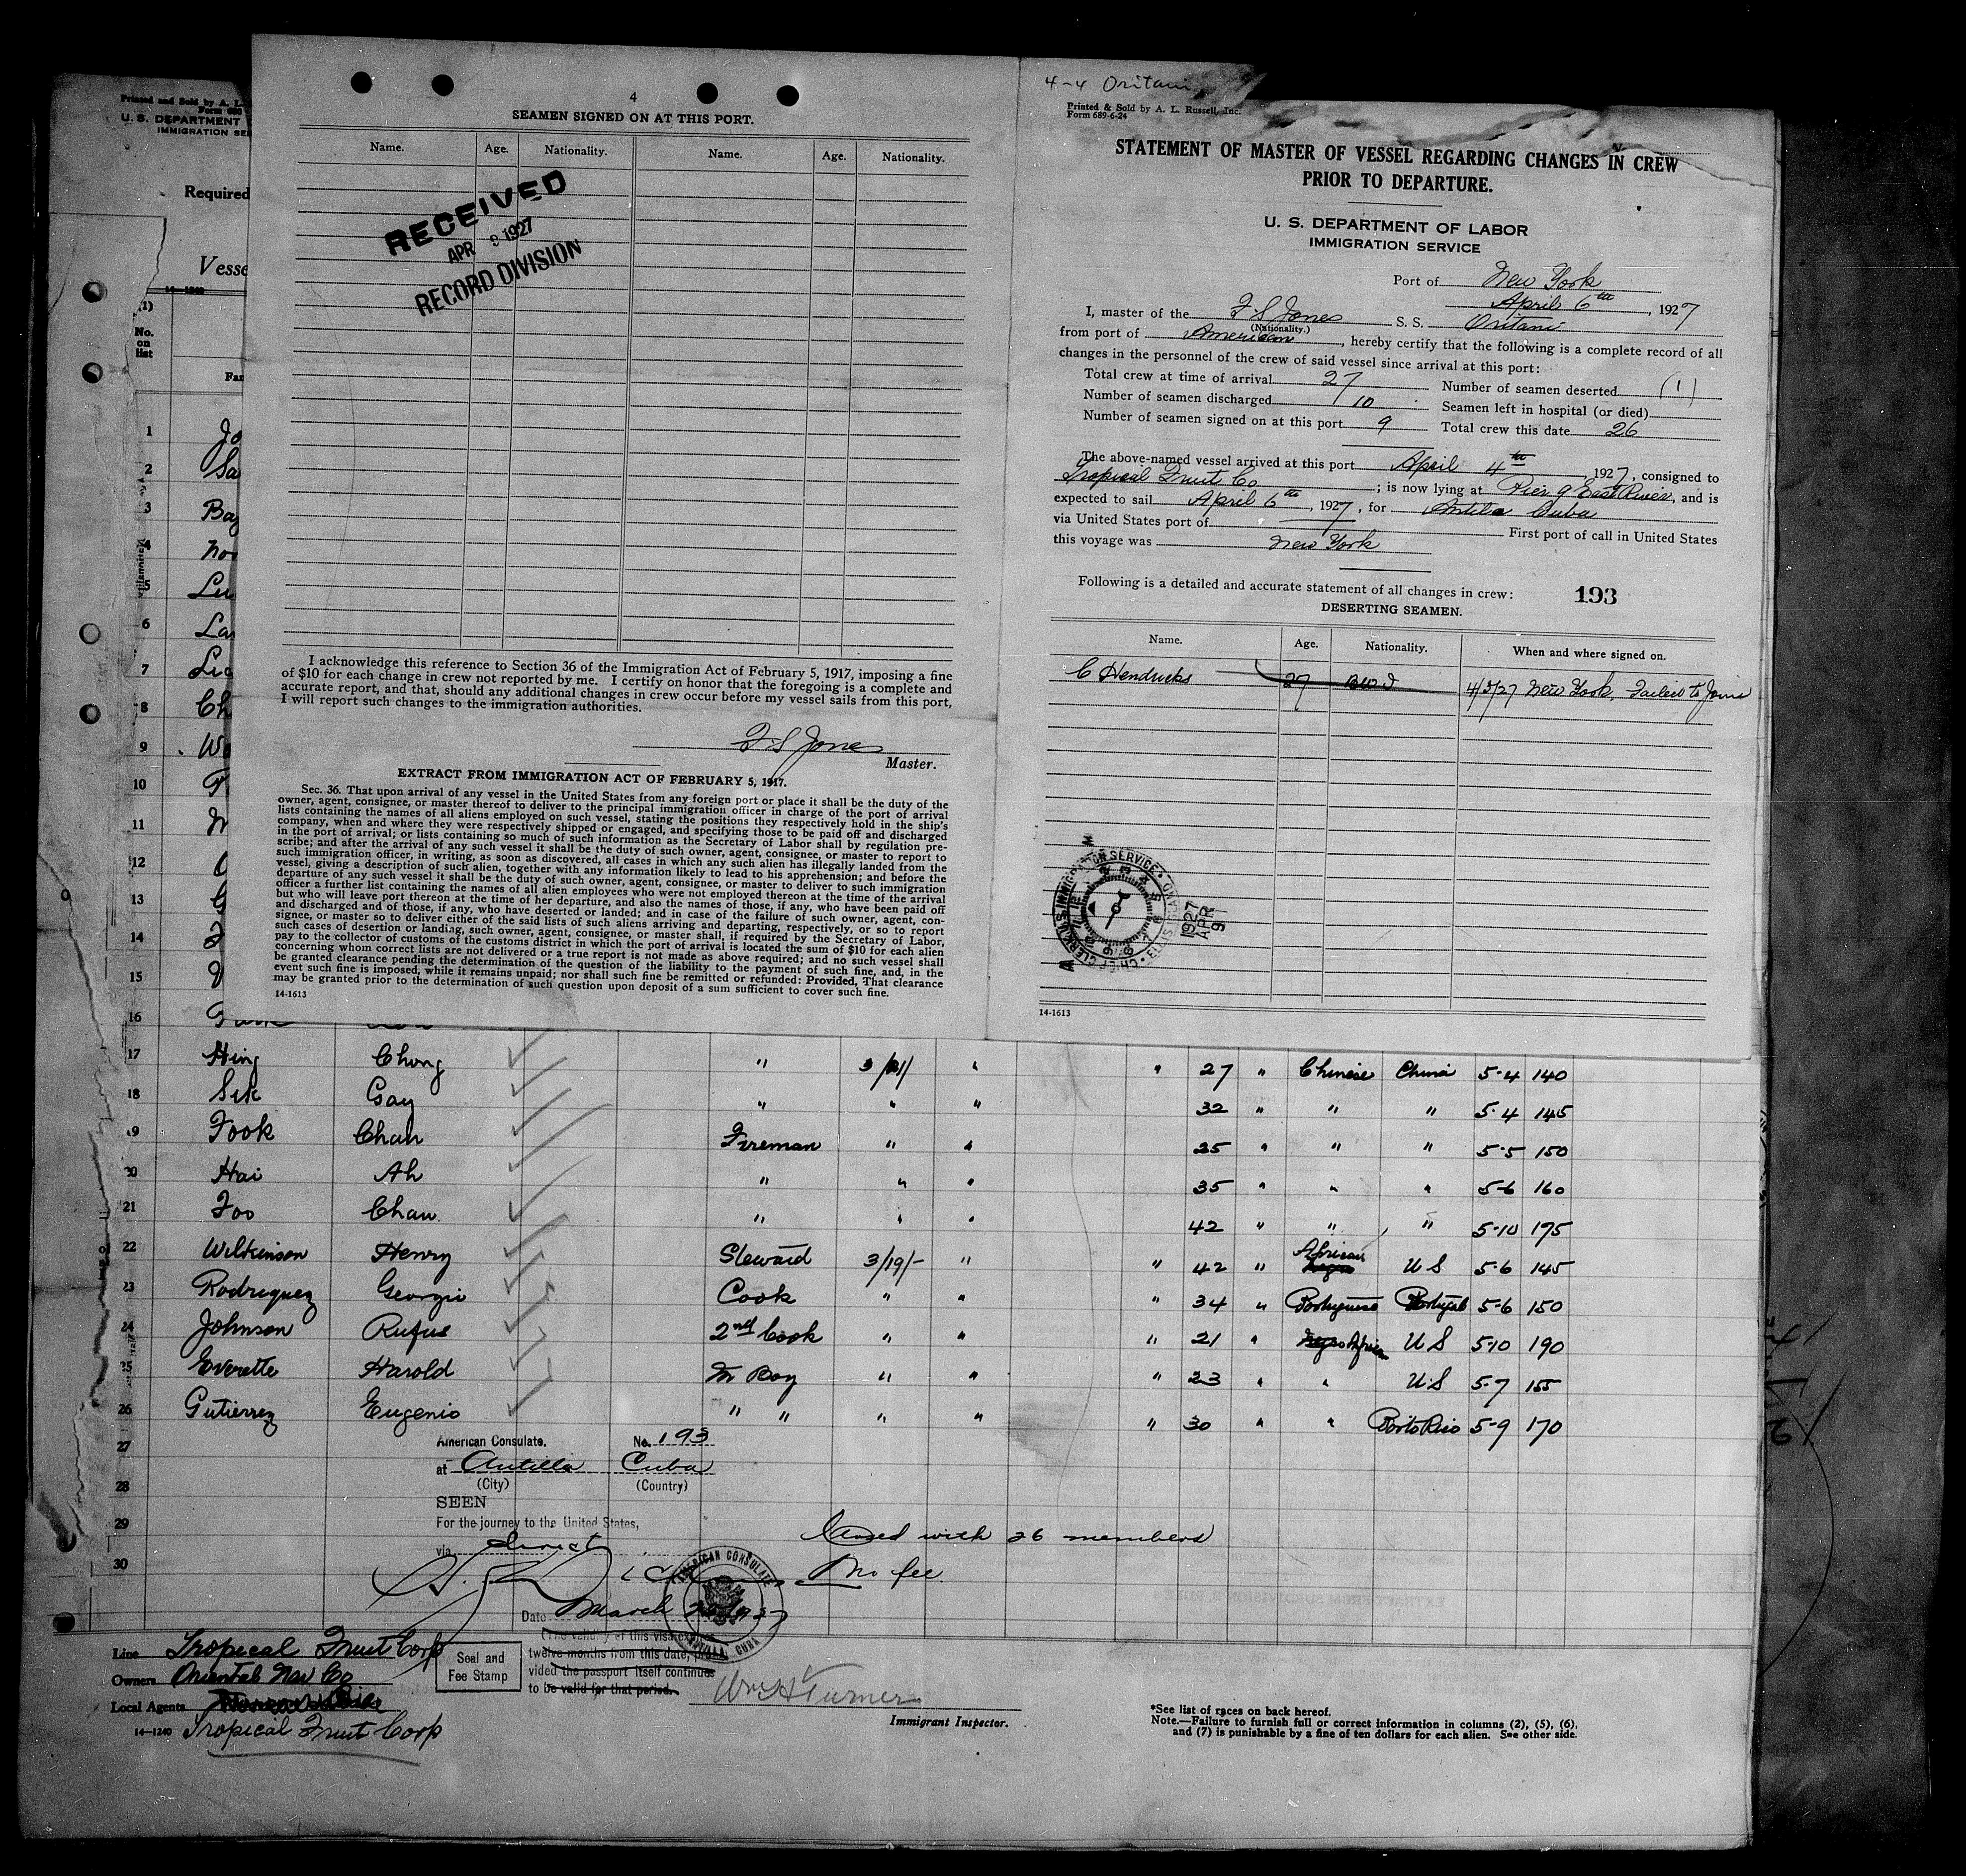 4
SEAMEN SIGNED ON AT THIS PORT.
Name. Age. Nationality. Name. Age. Nationality.
RECEIVED
APR 9 1927
RECORD DIVISION
I acknowledge this reference to Section 36 of the Immigration Act of February 5, 1917, imposing a fine
of $10 for each change in crew not reported by me. I certify on honor that the foregoing is a complete and
accurate report, and that, should any additional changes in crew occur before my vessel sails from this port,
I will report such changes to the immigration authorities.
F S Jones
Master.
EXTRACT FROM IMMIGRATION ACT OF FEBRUARY 5, 1917.
Sec. 36. That upon arrival of any vessel in the United States from any foreign port or place it shall be the duty of the
owner, agent, consignee, or master thereof to deliver to the principal immigration officer in charge of the port of arrival
lists containing the names of all aliens employed on such vessel, stating the positions they respectively hold in the ship's
company, when and where they were respectively shipped or engaged, and specifying those to be paid off and discharged
in the port of arrival; or lists containing so much of such information as the Secretary of Labor shall by regulation pre-
scribe; and after the arrival of any such vessel it shall be the duty of such owner, agent, consignee, or master to report to
such immigration officer, in writing, as soon as discovered, all cases in which any such alien has illegally landed from the
vessel, giving a description of such alien, together with any information likely to lead to his apprehension; and before the
departure of any such vessel it shall be the duty of such owner, agent, consignee, or master to deliver to such immigration
officer a further list containing the names of all alien employees who were not employed thereon at the time of the arrival
but who will leave port thereon at the time of her departure, and also the names of those, if any, who have been paid off
and discharged and of those, if any, who have deserted or landed; and in case of the failure of such owner, agent, con-
signee, or master so to deliver either of the said lists of such aliens arriving and departing, respectively, or so to report
such cases of desertion or landing, such owner, agent, consignee, or master shall, if required by the Secretary of Labor,
pay to the collector of customs of the customs district in which the port of arrival is located the sum of $10 for each alien
concerning whom correct lists are not delivered or a true report is not made as above required; and no such vessel shall
be granted clearance pending the determination of the question of the liability to the payment of such fine, and, in the
event such fine is imposed, while it remains unpaid; nor shall such fine be remitted or refunded: Provided, That clearance
may be granted prior to the determination of such question upon deposit of a sum sufficient to cover such fine.
14-1613
4-4 Oritani
Printed & Sold by A. L. Russell, Inc.
Form 689-6-24
STATEMENT OF MASTER OF VESSEL REGARDING CHANGES IN CREW
PRIOR TO DEPARTURE.
U. S. DEPARTMENT OF LABOR
IMMIGRATION SERVICE
Port of New York
April 6th, 1927
I, master of the F S Jones S. S. Oritani
(Nationality.)
from port of American, hereby certify that the following is a complete record of all
changes in the personnel of the crew of said vessel since arrival at this port:
Total crew at time of arrival 27 Number of seamen deserted (1)
Number of seamen discharged 10 Seamen left in hospital (or died)
Number of seamen signed on at this port 9 Total crew this date 26
The above-named vessel arrived at this port April 4th, 1927, consigned to
Tropical Fruit Co; is now lying at Pier 9 East River, and is
expected to sail April 6th, 1927, for Antilla Cuba
via United States port of First port of call in United States
this voyage was New York
Following is a detailed and accurate statement of all changes in crew: 193
DESERTING SEAMEN.
Name. Age. Nationality. When and where signed on.
C Hendricks 27 BWI 4/5/27 New York, Failed to Join
1927 APR 9
14-1613
Printed and Sold by A. L.
Form 689
U. S. DEPARTMENT
IMMIGRATION SE
Required
Vesse
(1)
No. on list
1 Jo
2 Sa
3
4
5
6 La
7
8 Ch
9
10
11
12
13
14
15
16
17 Hing Chong " 3/21/ " " 27 " Chinese China 5-4 140
18 Sik Gay " " " 32 " " " 5-4 145
19 Fook Chan Fireman " " 25 " " " 5-5 150
20 Hai Ah " " " 35 " " " 5-6 160
21 Foo Chan " " " 42 " " " 5-10 175
22 Wilkinson Henry Steward 3/19/- " " 42 " African U S 5-6 145
23 Rodriquez Georgie Cook " " " 34 " Portuguese Portugal 5-6 150
24 Johnson Rufus 2nd Cook " " " 21 " U S 5-10 190
25 Everette Harold M Boy " " " 23 " " U.S 5-7 155
26 Gutierrez Eugenio " " " " " 30 " " Porto Rico 5-9 170
27
28
29
30
American Consulate. No. 193
at Antilla Cuba
(City) (Country)
SEEN
For the journey to the United States,
via direct
Closed with 26 members
No fee
AMERICAN CONSULATE
ANTILLA, CUBA
Date March
(The validity of this visa
twelve months from this date, pro-
vided the passport itself continues
to be valid for that period.
Seal and
Fee Stamp
Wm H Turner
Immigrant Inspector.
Line Tropical Fruit Corp
Owners Oriental Nav Co
Local Agents
14-1240 Tropical Fruit Corp
*See list of races on back hereof.
Note.—Failure to furnish full or correct information in columns (2), (5), (6),
and (7) is punishable by a fine of ten dollars for each alien. See other side.